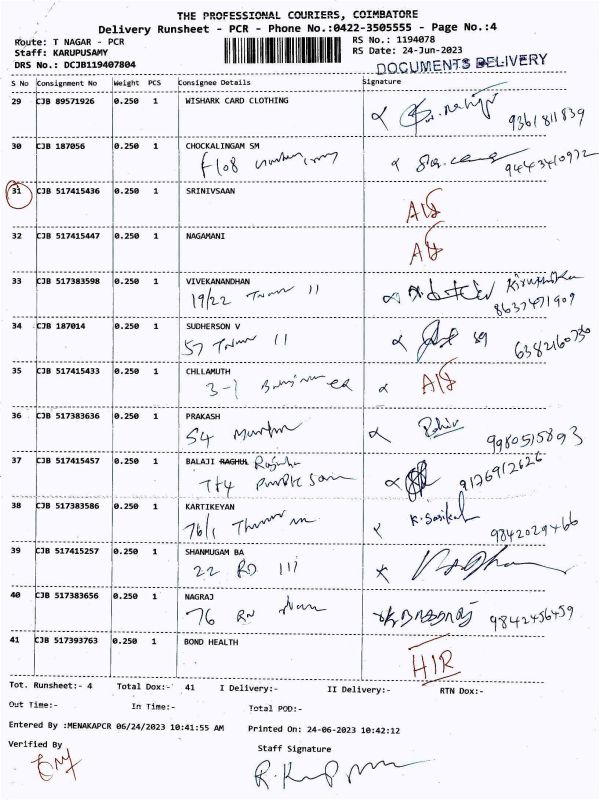 THE PROFESSIONAL COURIERS, COIMBATORE
Delivery Runsheet - PCR - Phone No.:0422-3505555 - Page No.:4
Route: T NAGAR - PCR RS No.: 1194078
Staff: KARUPUSAMY RS Date: 24-Jun-2023
DRS No.: DCJB119407804 DOCUMENTS DELIVERY
S No Consignment No Weight PCS Consignee Details Signature
29 CJB 89571926 0.250 1 WISHARK CARD CLOTHING
9361811839
30 CJB 187056 0.250 1 CHOCKALINGAM SM
F108
9443410972
31 CJB 517415436 0.250 1 SRINIVSAAN
32 CJB 517415447 0.250 1 NAGAMANI
33 CJB 517383598 0.250 1 VIVEKANANDHAN
19/22 11
8637471909
34 CJB 187014 0.250 1 SUDHERSON V
57 11
6382160730
35 CJB 517415433 0.250 1 CHLLAMUTH
3-1
36 CJB 517383636 0.250 1 PRAKASH
54
9980515893
37 CJB 517415457 0.250 1 BALAJI RAGHUL
9176912626
38 CJB 517383586 0.250 1 KARTIKEYAN
76/1 K. Sasikal
9842029466
39 CJB 517415257 0.250 1 SHANMUGAM BA
22 RD III
40 CJB 517383656 0.250 1 NAGRAJ
76 9842456459
41 CJB 517393763 0.250 1 BOND HEALTH
HIR
Tot. Runsheet:- 4 Total Dox:- 41 I Delivery:- II Delivery:- RTN Dox:-
Out Time:- In Time:- Total POD:-
Entered By :MENAKAPCR 06/24/2023 10:41:55 AM Printed On: 24-06-2023 10:42:12
Verified By Staff Signature